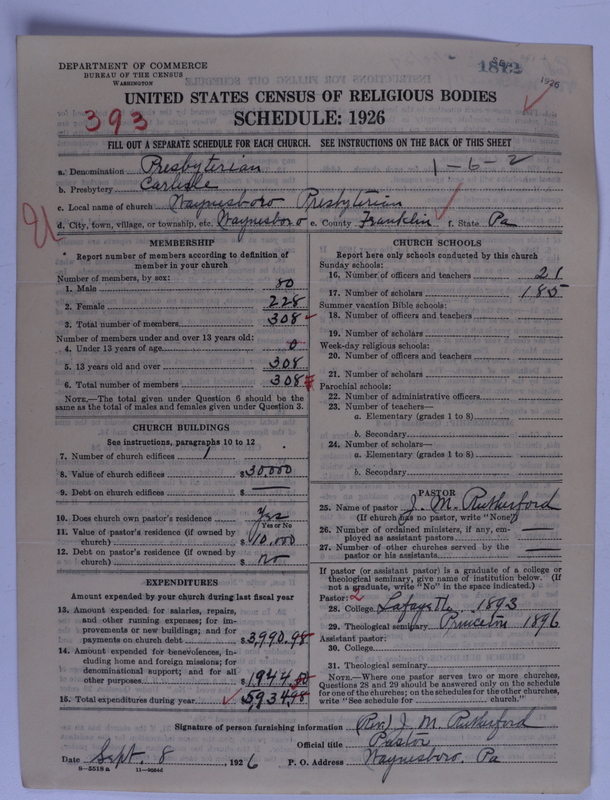 DEPARTMENT OF COMMERCE
BUREAU OF THE CENSUS
WASHINGTON
1926
UNITED STATES CENSUS OF RELIGIOUS BODIES
393
SCHEDULE: 1926
FILL OUT A SEPARATE SCHEDULE FOR EACH CHURCH. SEE INSTRUCTIONS ON THE BACK OF THIS SHEET
a. Denomination Presbyterian 1-6-2
b. Presbytery Carlisle
c. Local name of church Waynesboro Presbyterian
d. City, town, village, or township, etc. Waynesboro e. County Franklin f. State Pa
MEMBERSHIP
Report number of members according to definition of
member in your church
Number of members, by sex:
1. Male 80
2. Female 228
3. Total number of members 308
Number of members under and over 13 years old:
4. Under 13 years of age 0
5. 13 years old and over 308
6. Total number of members 308
NOTE.—The total given under Question 6 should be
same as the total of males and females given under Question 3.
CHURCH BUILDINGS
See instructions, paragraphs 10 to 12
7. Number of church edifices 1
8. Value of church edifices $30,000
9. Debt on church edifices $ —
10. Does church own pastor's residence Yes
Yes or No
11. Value of pastor's residence (if owned by
church) $10,000
12. Debt on pastor's residence (if owned by
church) $ no
EXPENDITURES
Amount expended by your church during last fiscal year
13. Amount expended for salaries, repairs,
and other running expenses; for im-
provements or new buildings; and for
payments on church debt $3990.98
14. Amount expended for benevolences, in-
cluding home and foreign missions; for
denominational support; and for all
other purposes $1944.
15. Total expenditures during year $5934.98
CHURCH SCHOOLS
Report here only schools conducted by this church
Sunday schools:
16. Number of officers and teachers 21
17. Number of scholars 185
Summer vacation Bible schools:
18. Number of officers and teachers
19. Number of scholars
Week-day religious schools:
20. Number of officers and teachers
21. Number of scholars
Parochial schools:
22. Number of administrative officers
23. Number of teachers—
a. Elementary (grades 1 to 8)
b. Secondary
24. Number of scholars—
a. Elementary (grades 1 to 8)
b. Secondary
PASTOR
25. Name of pastor J. M. Rutherford
(If church has no pastor, write "None")
26. Number of ordained ministers, if any, em-
ployed as assistant pastors —
27. Number of other churches served by the
pastor or his assistants —
If pastor (or assistant pastor) is a graduate of a college or
theological seminary, give name of institution below. (If
not a graduate, write "No" in the space indicated.)
Pastor: 2
28. College Lafayette 1893
29. Theological seminary Princeton 1896
Assistant pastor:
30. College
31. Theological seminary
NOTE.—Where one pastor serves two or more churches,
Questions 28 and 29 should be answered only on the schedule
for one of the churches; on the schedules for the other churches,
write "See schedule for church."
Signature of person furnishing information (Rev) J. M. Rutherford
Official title Pastor
Date Sept. 8, 1926 P. O. Address Waynesboro, Pa
8—5518a